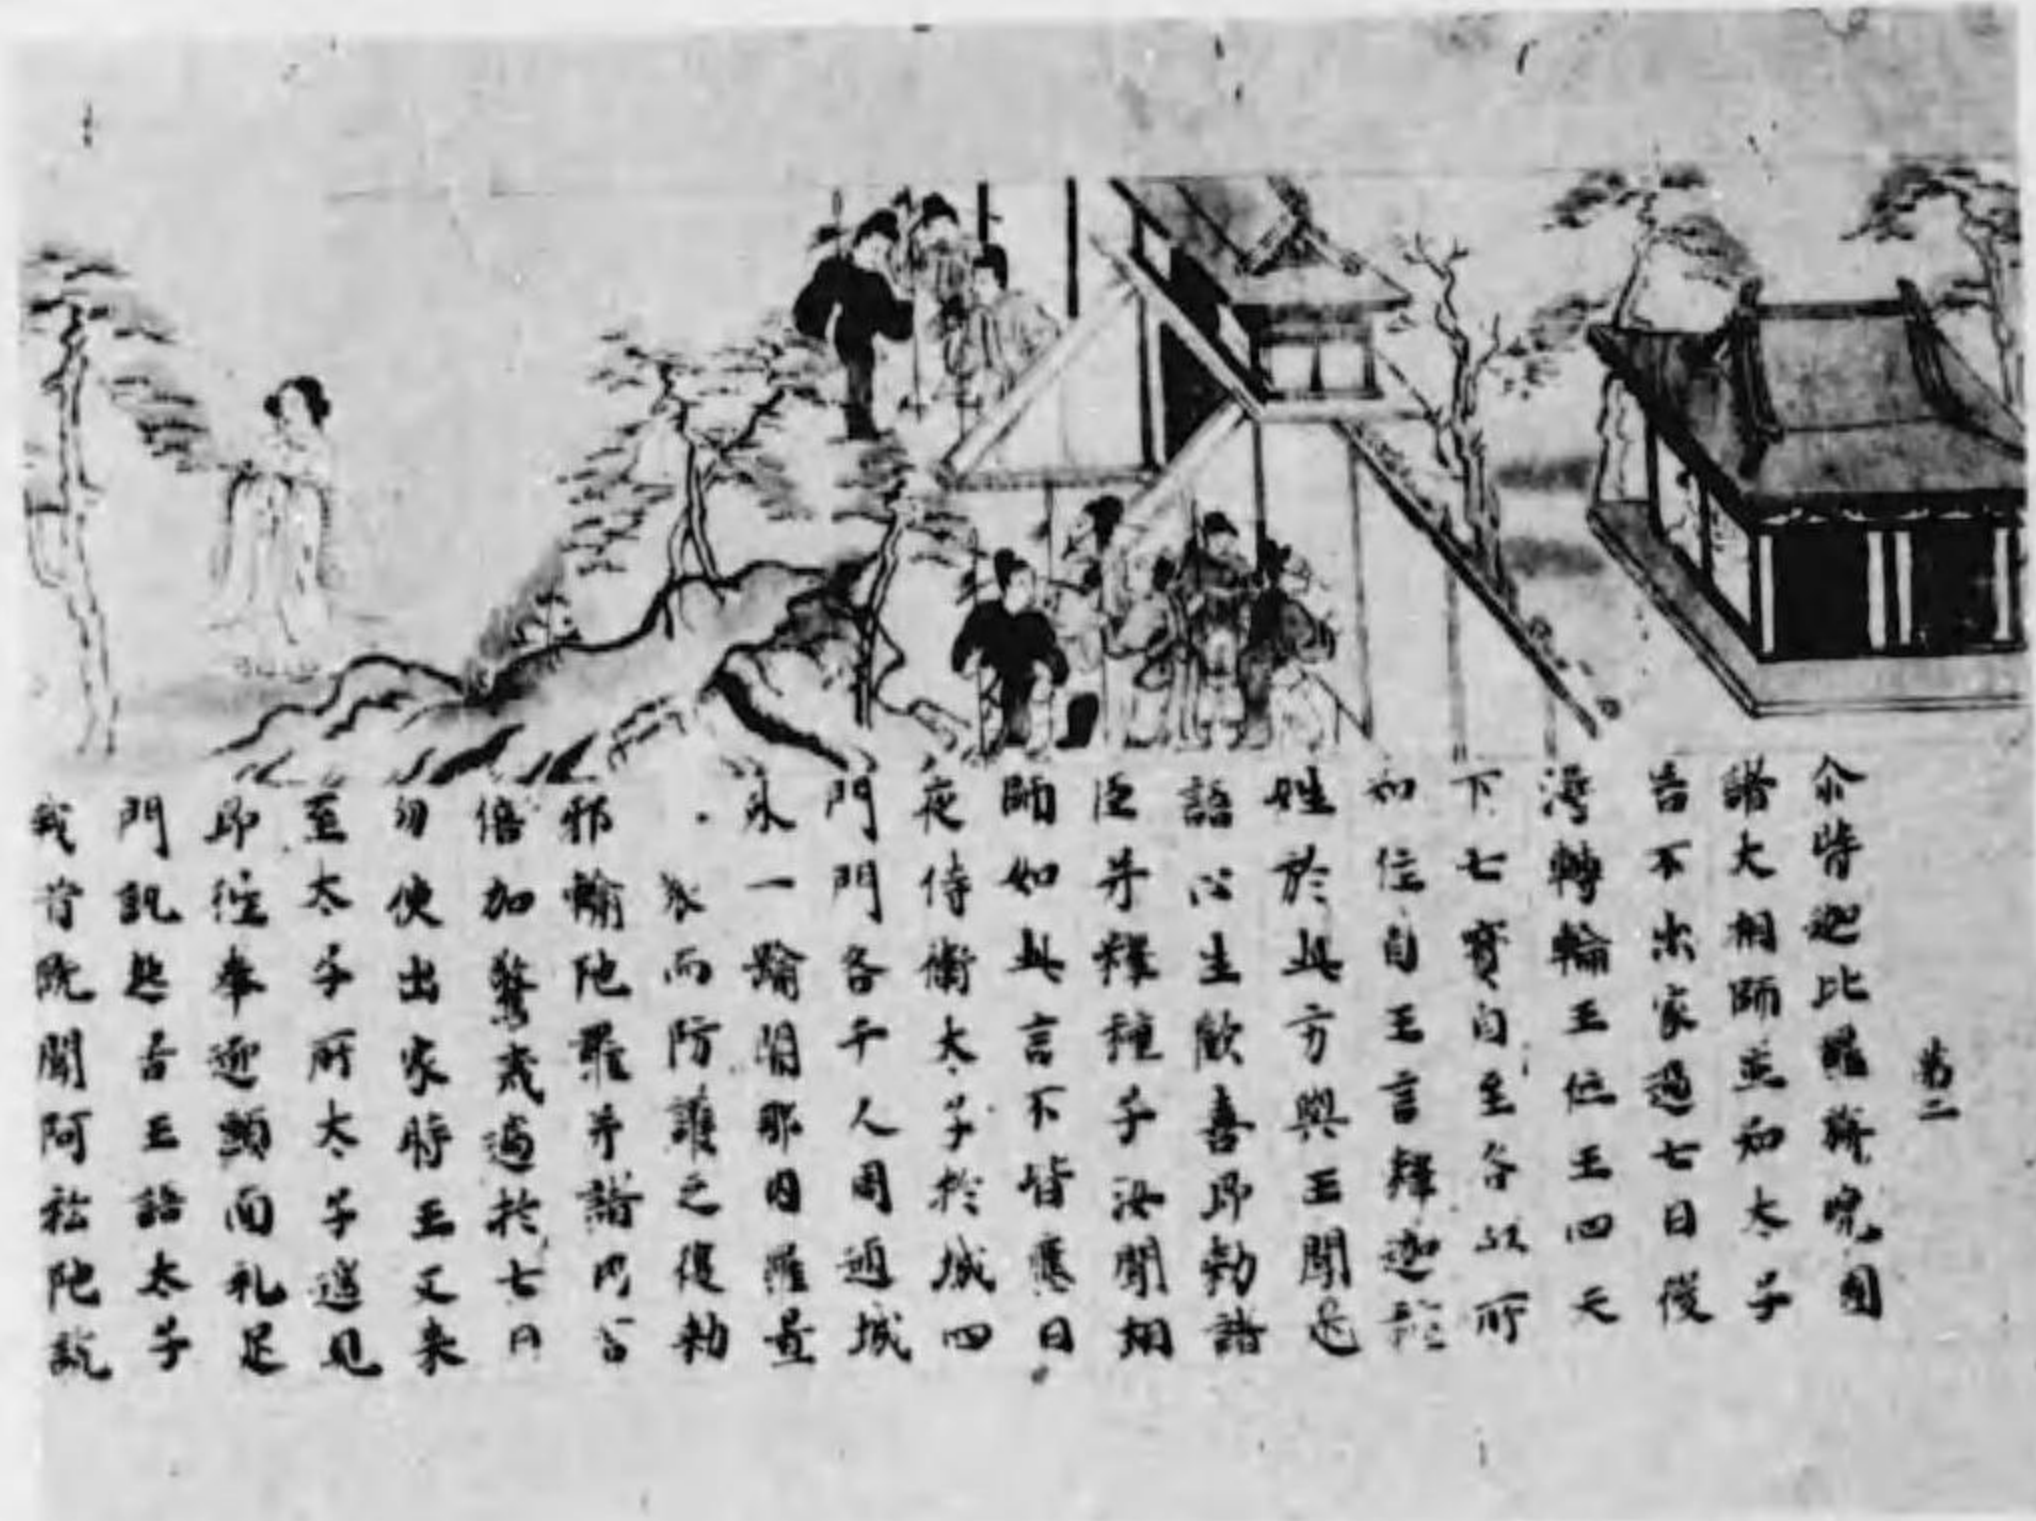 第二
尒時迦比羅斾兜國
諸大相師並知太子
若不出家過七日後
得轉輪王位王四天
下七寶自至各以所
知往白王言釋迦種
姓於此方興王聞是
語心生歡喜即勅諸
臣并釋種子汝聞相
師如此言不皆應日
夜侍衛太子於城四
門門各千人周迊城
外一踰闍那內羅置
人衆而防護之復勅
耶輸陁羅并諸內官
倍加警戒過於七日
勿使出家時王又來
至太子所太子遙見
即往奉迎頭面礼足
問訊起居王語太子
我昔既聞阿私陁說